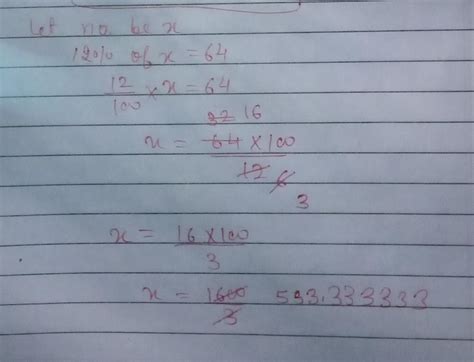 let no be x
12% of x = 64
12/100 × x = 64
32 16
x = 64 × 100 / 12 6
3
x = 16 × 100 / 3
x = 1600 / 3 593.333333